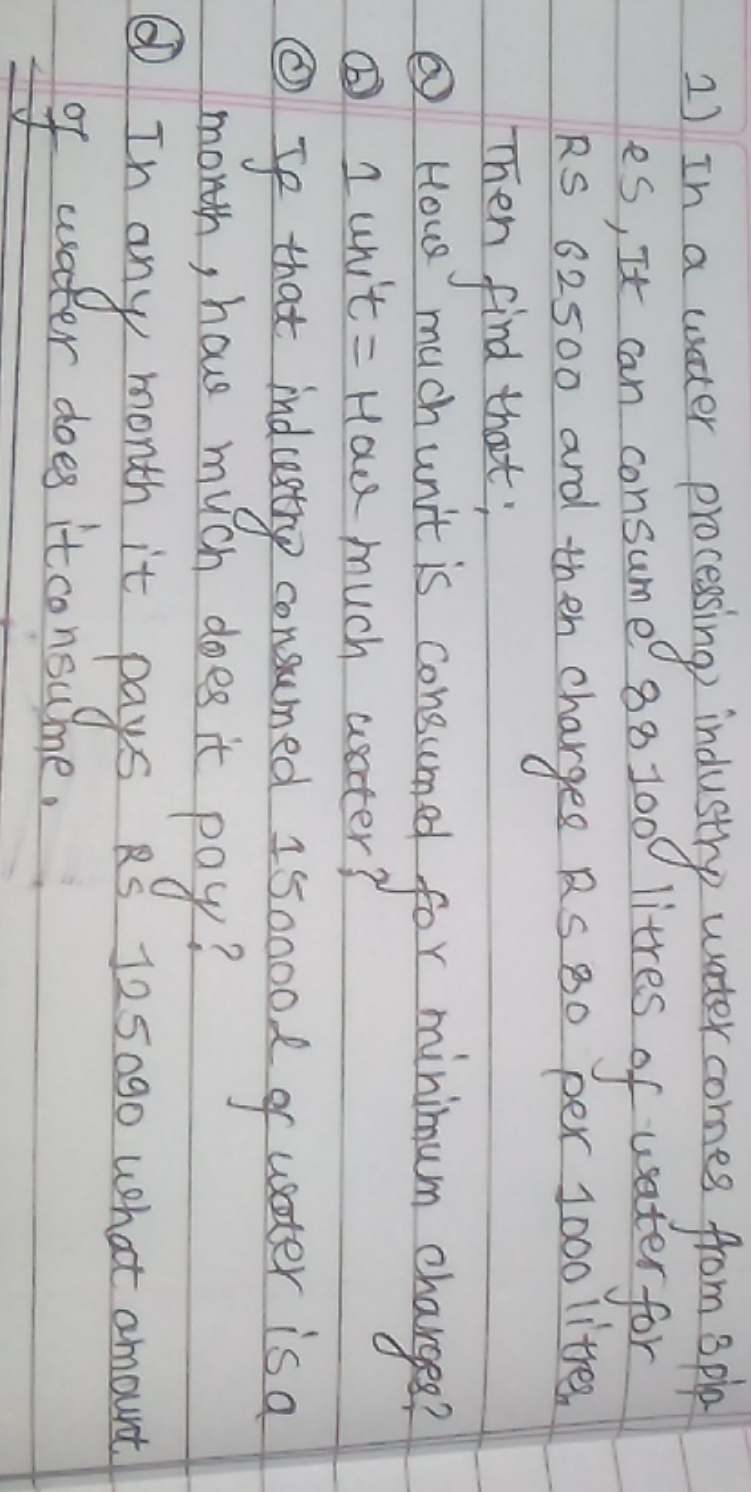 1) In a water processing industry water comes from 3 pip
es, It can consume 88100 litres of water for
RS 62500 and then charges RS 80 per 1000 litres,
Then find that;
a) How much unit is consumed for minimum charges?
b) 1 unit = How much water?
c) If that industry consumed 150000l of water is a
month, how much does it pay?
d) In any month it pays RS 125090 what amount
of water does it consume.